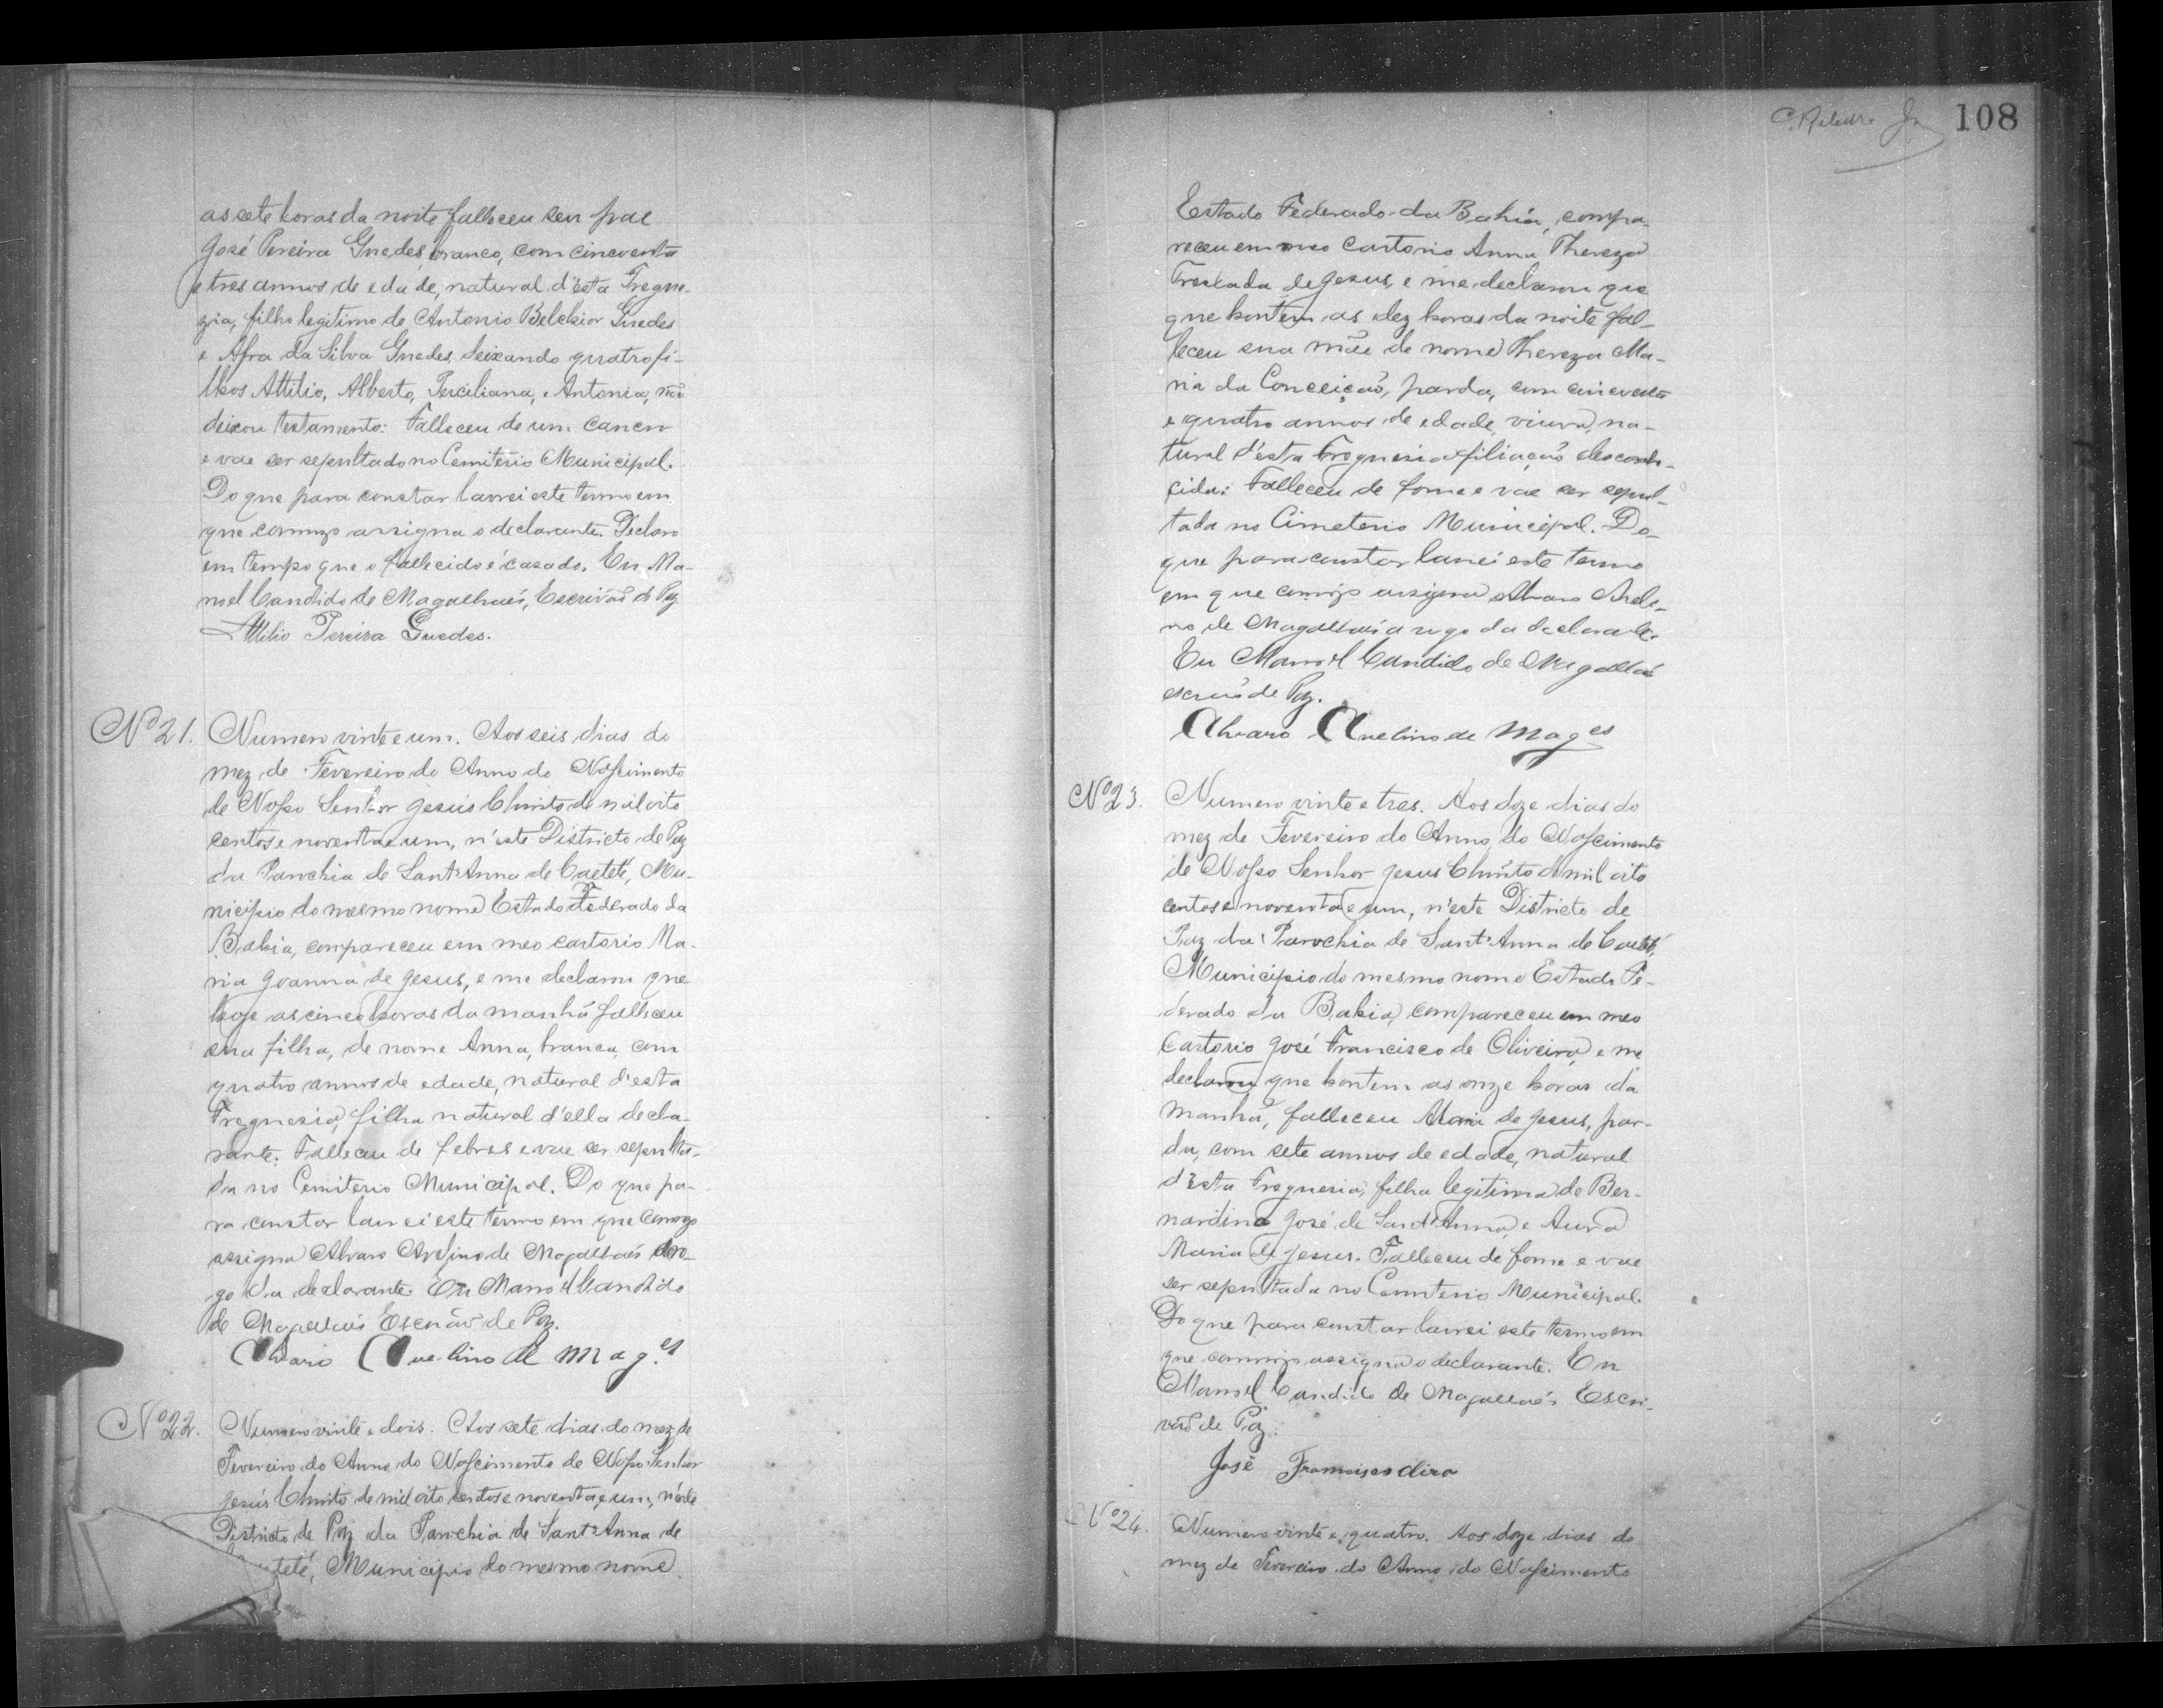 as sete horas da noite falleceu seu pae
José Pereira Guedes, branco, com cincoenta
e tres annos de edade, natural d'esta Fregue-
zia, filho legitimo de Antonio Belchior Guedes
e Afra da Silva Guedes, deixando quatro fi-
lhos Attilio, Alberto, Terciliana, e Antonia, não
deixou testamento: Falleceu de um cancro
e vae ser sepultado no Cemiterio Municipal.
Do que para constar lavrei este termo em
que commigo assigna o declarante. Declaro
em tempo que o fallecido é casado. Eu Ma-
noel Candido de Magalhaẽs, Escrivão de Paz
Attilio Pereira Guedes.
Nº 21. Numero vinte e um. Aos seis dias do
mez de Fevereiro do Anno do Nascimento
de Nosso Senhor Jesus Christo de mil oito
centos e noventa e um, n'este Districto de Paz
da Parochia de Sant'Anna de Caeteté, Mu-
nicipio do mesmo nome Estado Federado da
Bahia, compareceu em meo cartorio Ma-
ria Joanna de Jesus, e me declarou que
hoje as cinco horas da manhã falleceu
sua filha, de nome Anna, branca com
quatro annos de edade, natural d'esta
Freguesia, filha natural d'ella decla-
rante. Falleceu de febres e vae ser sepulta-
da no Cemiterio Municipal. Do que pa-
ra constar lavrei este termo em que comigo
assigna Alvaro Avelino de Magalhaẽs a ro-
go da declarante. Eu Manoel Candido
de Magalhaẽs Escrivão de Paz.
Alvaro Avelino de Mag.es
Nº 22. Numero vinte e dois. Aos sete dias do mez de
Fevereiro do Anno do Nascimento de Nosso Senhor
Jesus Christo de mil oito centos e noventa e um, n'este
Districto de Paz da Parochia de Sant'Anna de
teté, Municipio do mesmo nome
108
Estado Federado da Bahia, compa-
receu em meo Cartorio Anna Thereza
de Jesus, e me declarou que
que hontem as dez horas da noite fal-
leceu sua mãe de nome Thereza Ma-
ria da Conceição, parda, com cincoenta
e quatro annos de edade, viuva, na-
tural d'esta Freguesia filiação desconhe-
cida: Falleceu de fome e vae ser sepul-
tada no Cimeterio Municipal. Do
que para constar lavrei este termo
em que comigo assigna Alvaro Aveli-
no de Magalhaẽs a rogo da declarante.
Eu Manoel Candido de Magalhaẽs
escrivão de Paz.
Alvaro Avelino de Mag es
Nº 23. Numero vinte e tres. Aos doze dias do
mez de Fevereiro do Anno do Nascimento
de Nosso Senhor Jesus Christo de mil oito
centos e noventa e um, n'este Districto de
Paz da Parochia de Sant'Anna de Caeteté,
Municipio do mesmo nome Estado Fe-
derado da Bahia, compareceu em meo
Cartorio José Francisco de Oliveira, e me
declarou que hontem as onze horas da
manhã, falleceu de Jesus, par-
da, com sete annos de edade, natural
d'esta Freguesia, filha legitima de Ber-
nardino José de Sant'Anna, e
Maria de Jesus. Falleceu de fome e vae
ser sepultada no Cemiterio Municipal.
Do que para constar lavrei este termo em
que commigo assigna o declarante. Eu
Manoel Candido de Magalhaẽs Escri-
vão de Paz.
José Francisco
Nº 24. Numero vinte e quatro. Aos doze dias do
mez de Fevereiro do Anno do Nascimento